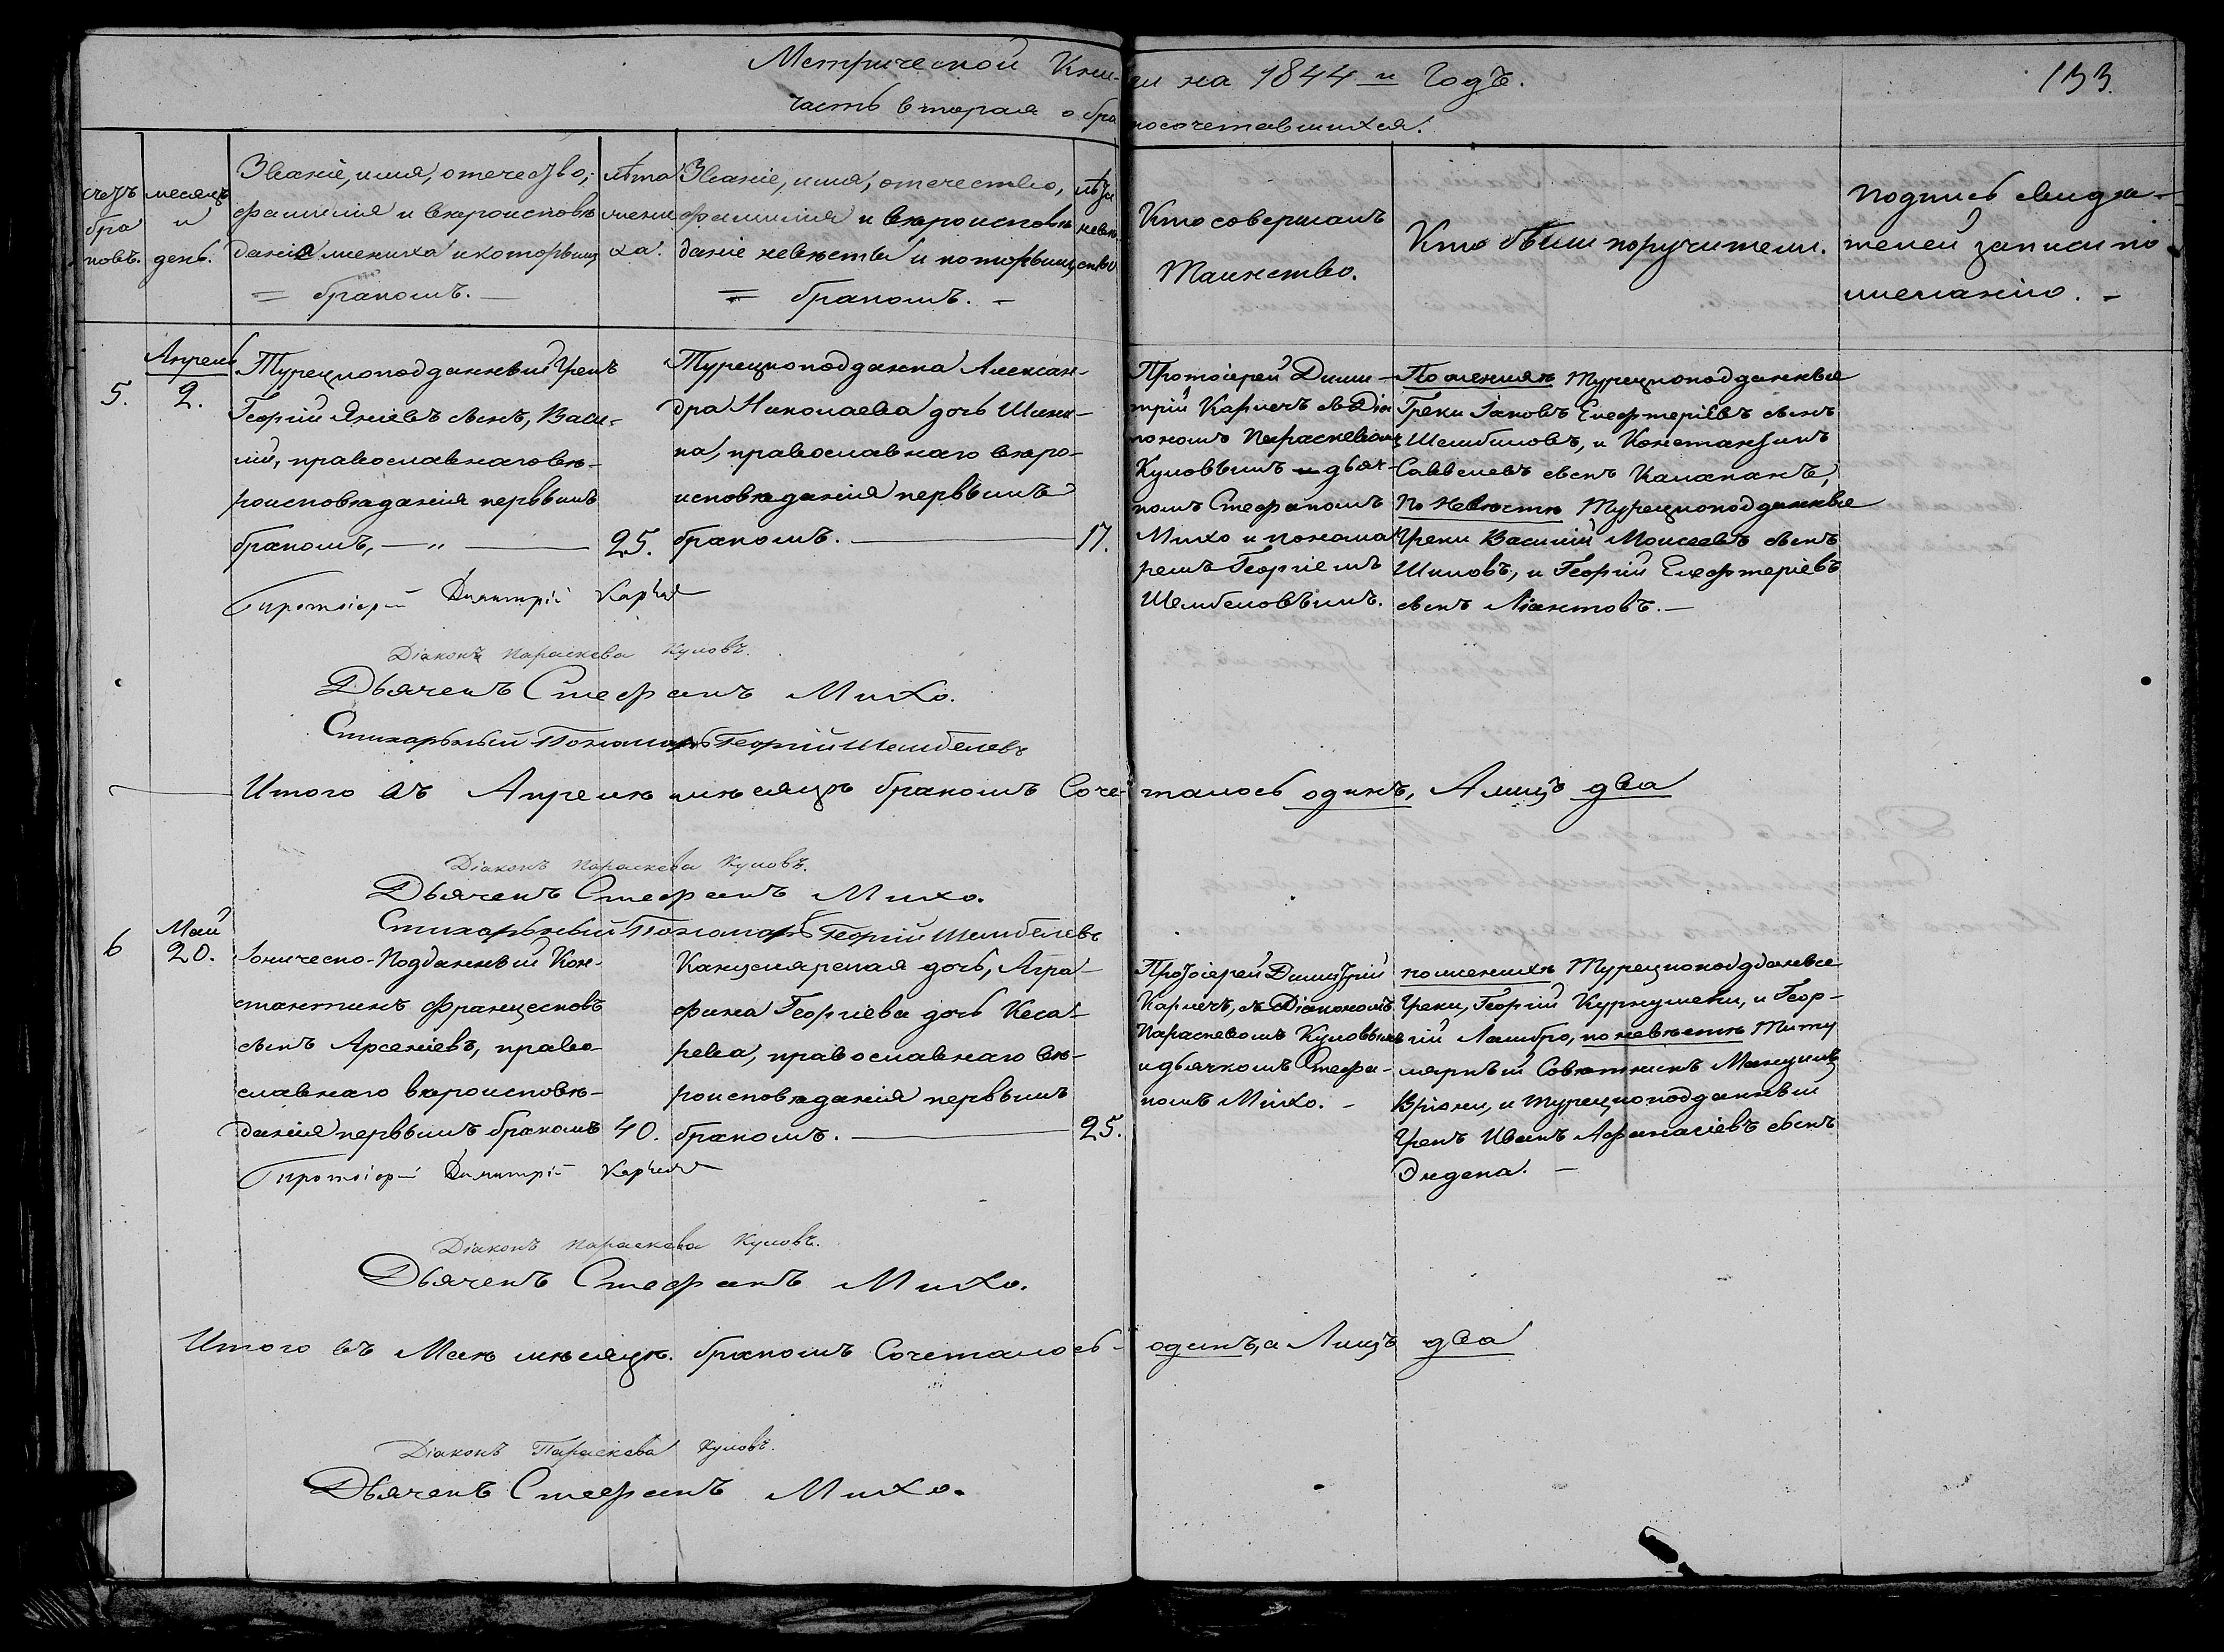 Метрической Книги на 1844 и Годъ.
133.
часть вторая о бракосочетавшихся.
счетъ браковъ.
месяцъ и день.
Званіе, имя, отечество,
фамилія и вѣроисповѣ
даніе жениха и которымъ
= бракомъ. —
лѣта
жени
ха.
Званіе, имя, отечество,
фамилія и вѣроисповѣ
даніе невѣсты и которымъ
= бракомъ. —
лѣта
невѣ
сты
Кто совершалъ
Таинство.
Кто были поручители.
подпись свидѣ-
телей записи по
желанію. —
5.
Апрель
2.
Турецкоподданный Грекъ
Георгій Яніевъ сынъ, Васи-
лій, православнаго вѣ-
роисповѣданія первымъ
бракомъ, — „ —
25.
Турецкоподданка Алексан-
дра Николаева дочь Шики-
на, православнаго вѣро-
исповѣданія первымъ
бракомъ. —
17.
Протоіерей Дими-
трій Карнечъ съ Діа
кономъ Параскевою
Куловымъ и дьяч-
комъ Стефаномъ
Михо и понама
ремъ Георгіемъ
Шембеловымъ.
По женихѣ Турецкоподданные
Греки Іаковъ Елефтеріевъ сынъ
Шембиловъ, и Константинъ
Саввелевъ сынъ Калаканъ,
По Невѣстѣ Турецкоподданные
Греки Василій Моисеевъ сынъ
Шиловъ, и Георгій Елефтеріевъ
сынъ Ліантовъ. —
Протоіерей Димитрій Карнечъ
Діаконъ Параскева Куловъ.
Дьячекъ Стефанъ Михо.
Стихарный Пономарь Георгій Шембелевъ
Итого въ Апрелѣ мѣсяцѣ бракомъ Сочеталось одинъ, А лицъ два
Діаконъ Параскева Куловъ.
Дьячекъ Стефанъ Михо.
Стихарный Пономарь Георгій Шембелевъ
6
Май
20.
Іоническо-Подданный Кон-
стантинъ Францесковъ
сынъ Арсеніевъ, право-
славнаго вѣроисповѣ-
данія первымъ бракомъ
40.
Канцелярская дочь, Агра-
фина Георгіева дочь Кеса-
рева, православнаго вѣ-
роисповѣданія первымъ
бракомъ. —
25.
Протоіерей Димитрій
Карнечъ, съ Діакономъ
Параскевомъ Куловымъ
и дьячкомъ Стефа-
номъ Михо. —
по женихѣ Турецкоподданые
Греки, Георгій Куркумели, и Геор-
гій Ламбро, по невѣстѣ Титу
лярный Совѣтникъ Мануилъ
Вріони, и турецкоподданный
Грекъ Иванъ Афанасіевъ сынъ
Эндека. —
Протоіерей Димитрій Карнечъ
Діаконъ Параскева Куловъ.
Дьячекъ Стефанъ Михо.
Итого въ Маѣ мѣсяцѣ. бракомъ Сочеталось одинъ, а Лицъ два
Діаконъ Параскева Куловъ.
Дьячекъ Стефанъ Михо.